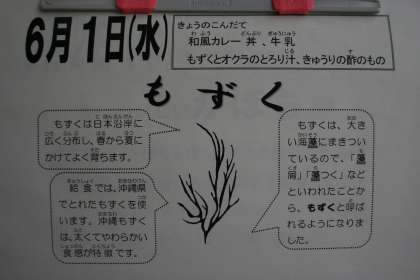 6月1日(水)
きょうのこんだて
和風カレー丼、牛乳
もずくとオクラのとろり汁、きゅうりの酢のもの
もずく
もずくは日本沿岸に
広く分布し、春から夏に
かけてよく育ちます。
給食では、沖縄県
でとれたもずくを使
います。沖縄もずく
は、太くてやわらかい
食感が特徴です。
もずくは、大き
い海藻にまきつい
ているので、「藻
屑」「藻つく」など
といわれたことか
ら、もずくと呼ば
れるようになりま
した。